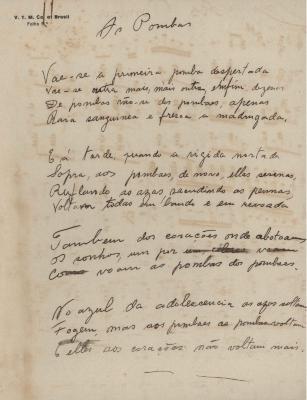 V. T. M. Co. of Brasil
Folha N.
As Pombas
Vae-se a primeira pomba despertada
Vae-se outra mais, mais outra, emfim dezenas
De pombas vão-se dos pombaes, apenas
Raia sanguinea e fresca a madrugada,
E á tarde, quando a rigida nortada
Sopra, aos pombaes, de novo, ellas serenas,
Ruflando as azas, sacudindo as pennas
Voltam todas em bando e em revoada
Tambem dos corações onde abotoam
Os sonhos, um por
voam as pombas dos pombaes.
No azul da adolescencia as azas soltam
Fogem, mas aos pombaes as pombas voltam
E elles aos corações não voltam mais.